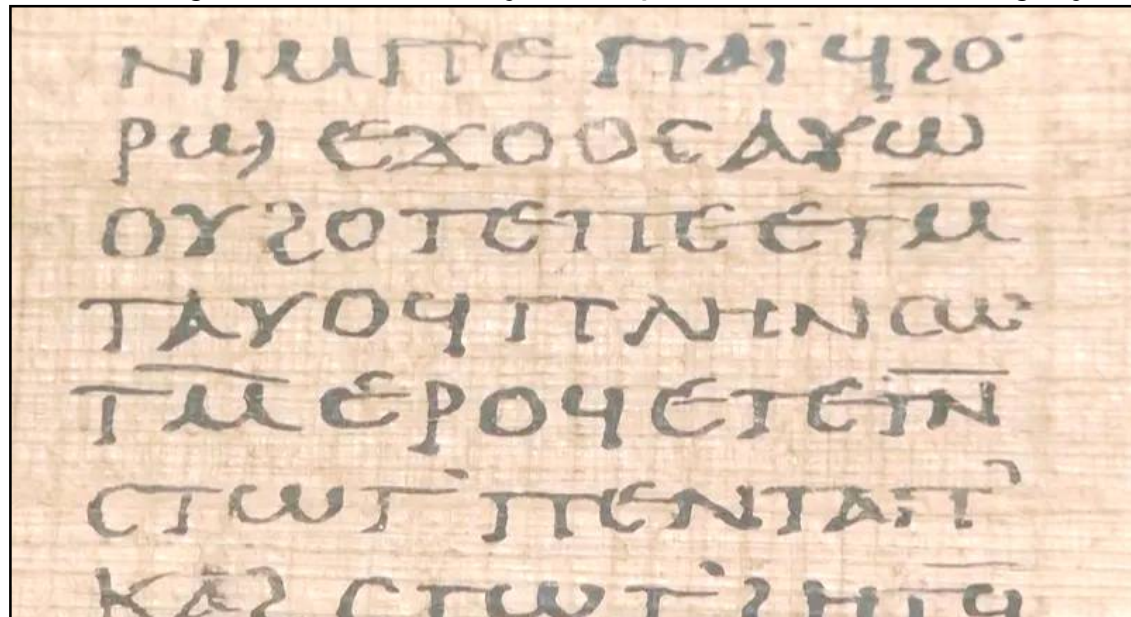 ⲛⲓⲙ ⲡⲉ ⲡⲁⲓ̈ ϥϩⲟ
ⲣϣ ⲉϫⲟⲟⲥ ⲁⲩⲱ
ⲟⲩϩⲟⲧⲉ ⲡⲉ ⲉⲧⲙ̄
ⲧⲁⲩⲟϥ ⲡⲗⲏⲛ ⲥⲱ
ⲧⲙ̄ ⲉⲣⲟϥ ⲉⲧⲉⲧⲛ̄
ⲥⲧⲱⲧ' ⲡⲉⲛⲧⲁⲡ'
ⲕⲁϩ ⲥⲧⲱⲧ' ϩⲏⲧϥ̄